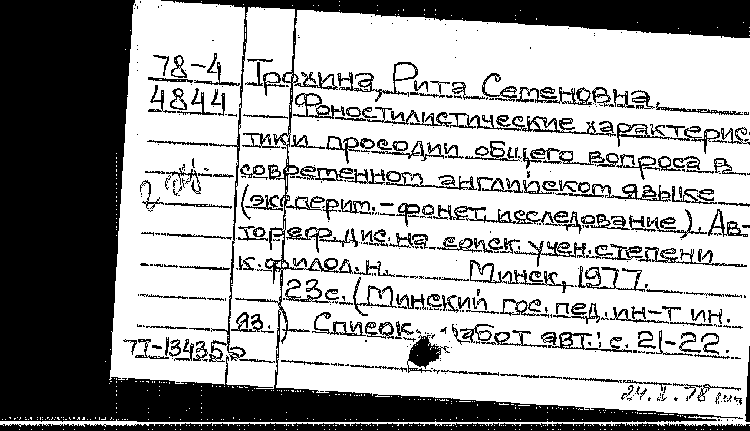 78-4 Трохина, Рита Семеновна.
4844 Фоностилистические характерис-
тики просодии общего вопроса в
современном английском языке
(эксперит.-фонет. исследование). Ав-
тореф. дис. на соиск. учен. степени
к. филол. н. Минск, 1977.
23с. (Минский гос. пед. ин-т ин.
яз.) Список работ авт.: с. 21-22.
77-13435
24. 78